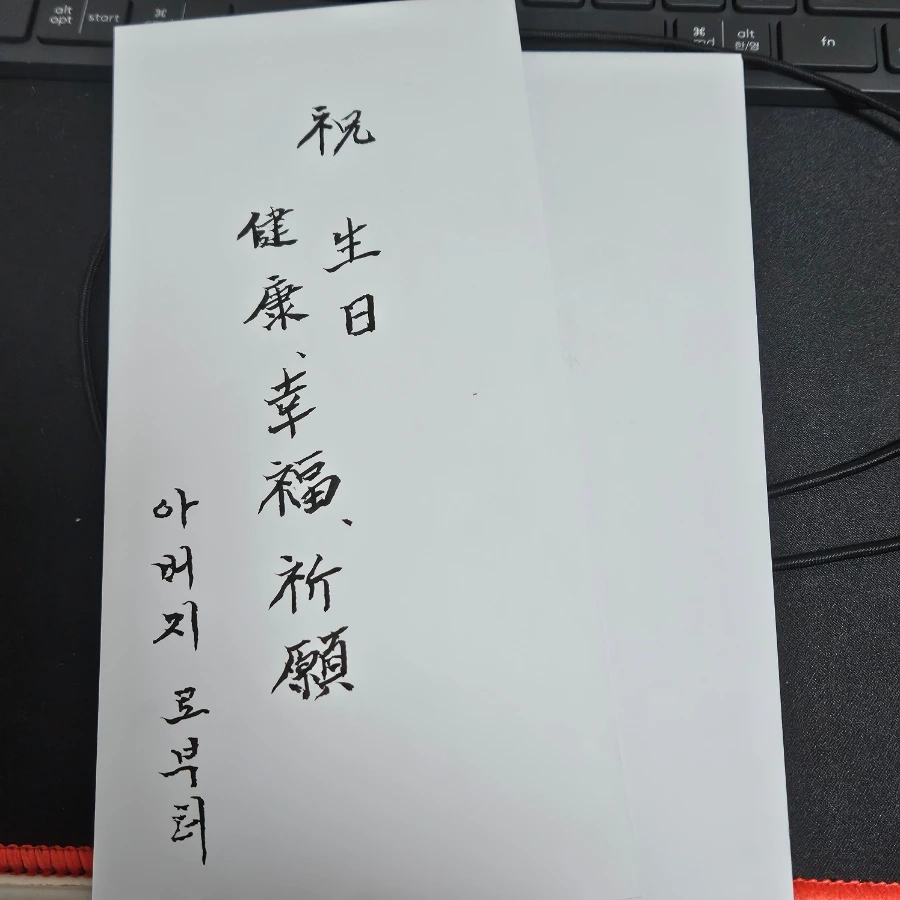 alt
opt
start
⌘
⌘
cmd
alt
한/영
fn
祝
生日
健康、幸福、祈願
아버지로부터